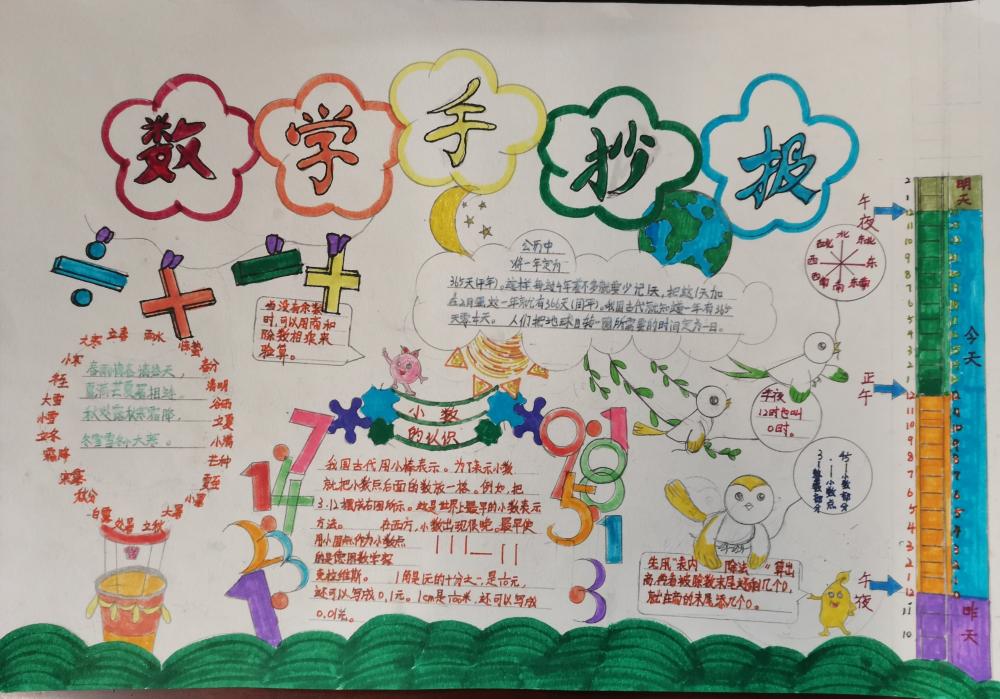 数学手抄报
公历中
将一年定为
365天(平年)。这样每过4年差不多就要少记1天,把这1天加
在2月里,这一年就有366天(闰年)。我国古代就知道一年有365
天零
天。 人们把地球自转一圈所需要的时间定为一日。
当没有余数
时,可以用商和
除数相乘来
验算。
立春
雨水
惊蛰
春分
清明
谷雨
立夏
小满
芒种
夏至
小暑
大暑
立秋
处暑
白露
秋分
寒露
霜降
立冬
小雪
大雪
冬至
小寒
大寒
春雨惊春清谷天,
夏满芒夏暑相连。
秋处露秋寒霜降,
冬雪雪冬小大寒。
小数
的认识
我国古代用小棒表示。为了表示小数
就把小数点后面的数放一格。例如,把
3.12摆成右图所示。这是世界上最早的小数表示
方法。 在西方,小数出现很晚。最早使
用小圆点作为小数点
的是德国数学家
克拉维斯。 1角是1元的十分之一,是
元,
还可以写成0.1元。1cm是
米,还可以写成
0.01米。
7
1
4
2
3
1
9
1
8
5
1
3
午夜
12时也叫
0时。
45—小数部分
·—小数点
3—整数部分
先用"表内
除法"算出
商,再看被除数末尾还剩几个0,
就在商的末尾添几个0。
北
东北
东
东南
南
西南
西
西北
午夜
正午
午夜
明天
今天
昨天
2
1
12
11
10
9
8
7
6
5
4
3
2
1
12
11
10
9
8
7
6
5
4
3
2
1
12
11
10